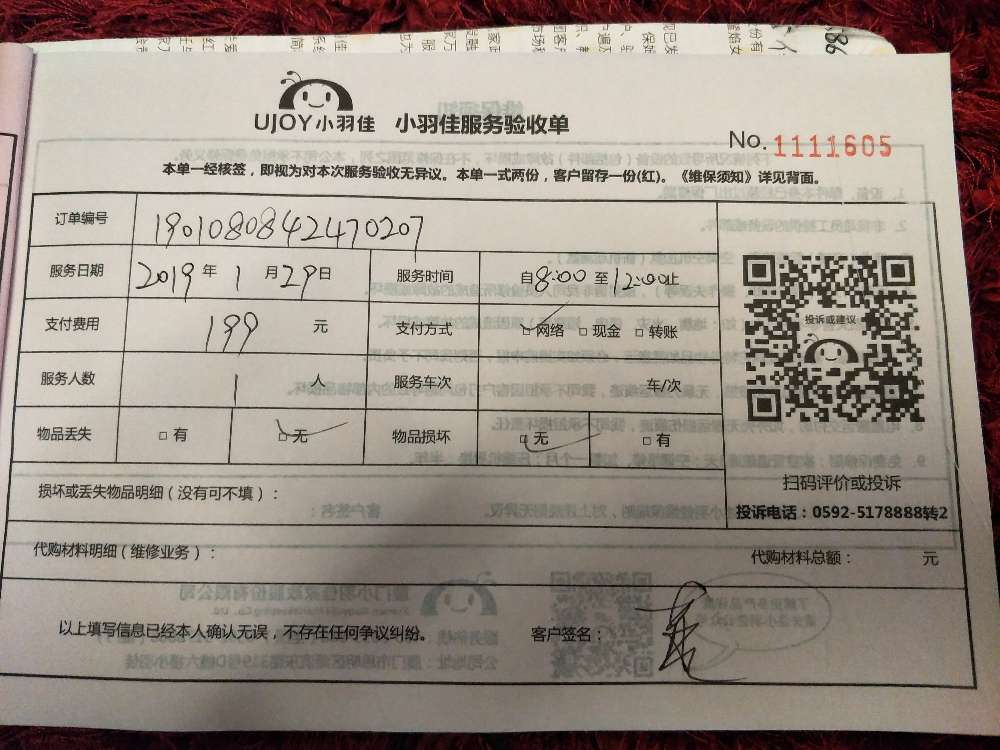 UJOY小羽佳 小羽佳服务验收单
No.1111605
本单一经核签，即视为对本次服务验收无异议。本单一式两份，客户留存一份(红)。《维保须知》详见背面。
订单编号 1901080842470207
服务日期 2019年1月29日 服务时间 自8:00至12:00止
支付费用 199元 支付方式 □网络 □现金 □转账
服务人数 1人 服务车次 车/次
物品丢失 □有 □无 物品损坏 □无 □有
投诉或建议
扫码评价或投诉
投诉电话：0592-5178888转2
损坏或丢失物品明细（没有可不填）：
代购材料明细（维修业务）： 代购材料总额： 元
以上填写信息已经本人确认无误，不存在任何争议纠纷。 客户签名：